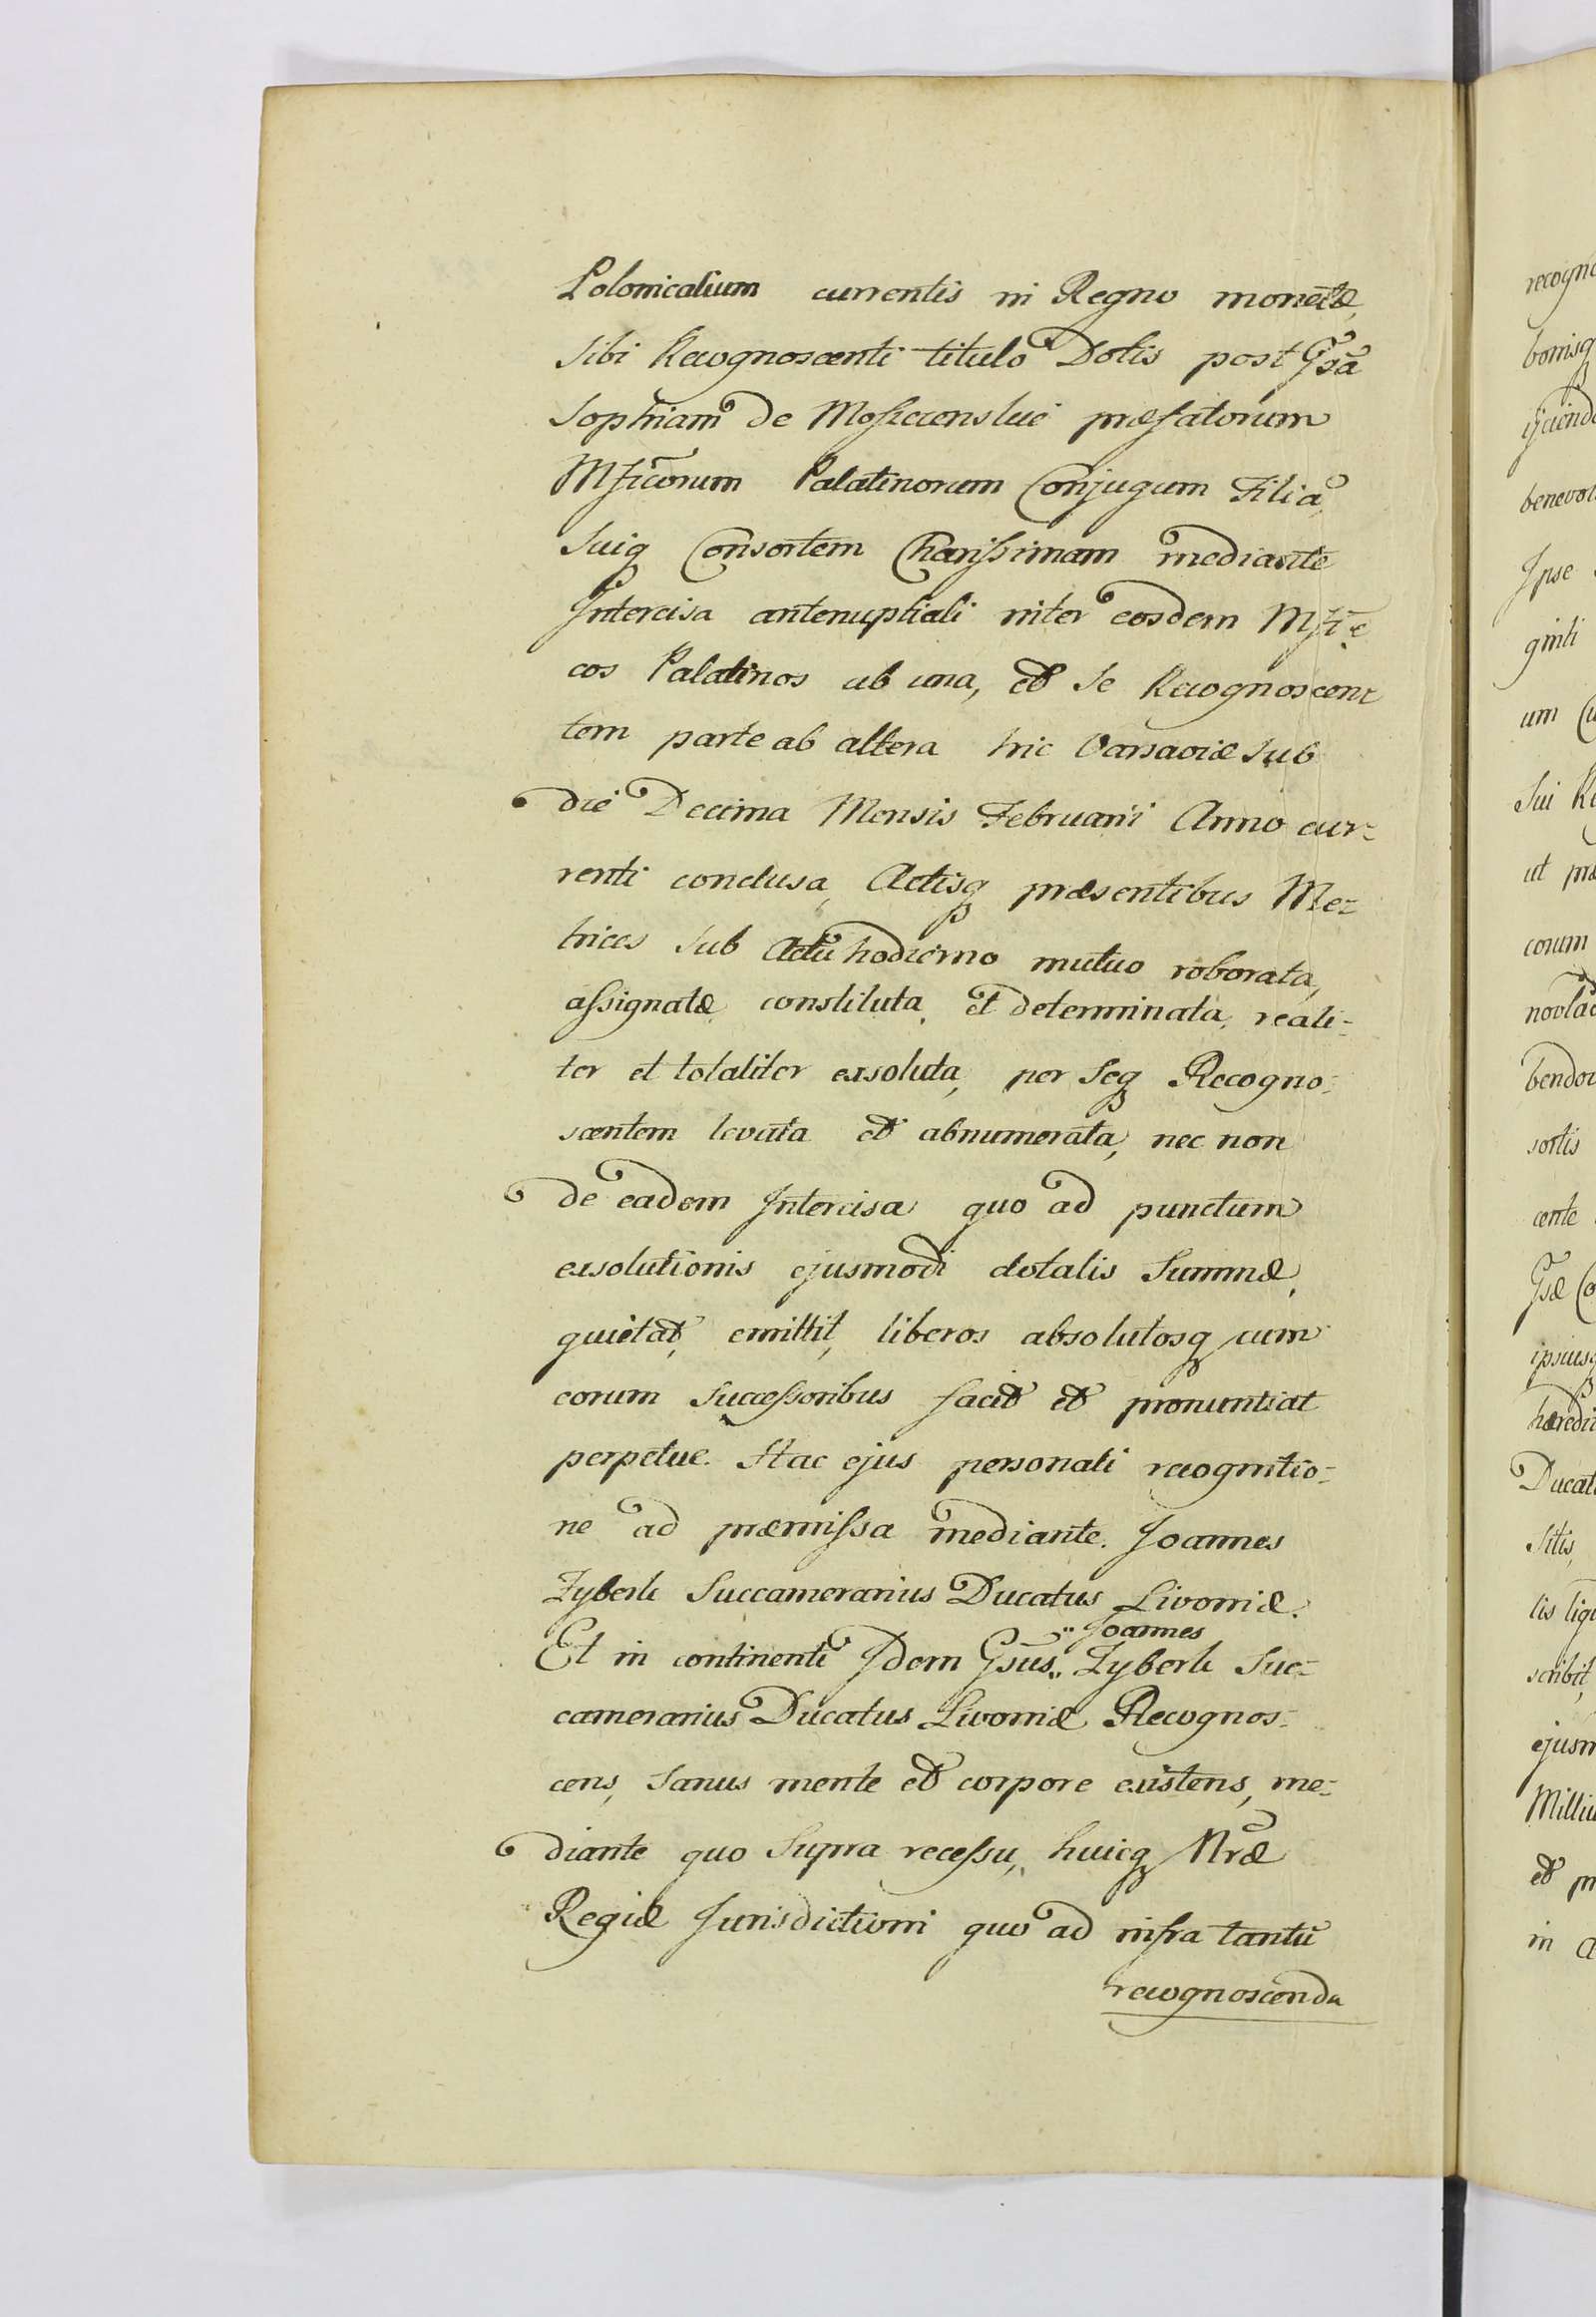 Polonicalium currentis in Regno monetæ,
Sibi Recognoscenti titulo Dotis post Gsã
Sophiam de Moszcenskie præfatorum
Mficorum Palatinorum Conjugum Filiã,
Suiq Consortem Charissimam mediante
Intercisa antenuptiali inter eosdem Mfi=
cos Palatinos ab una, et Se Recognoscen=
tem parte ab altera hic Varsaviæ Sub
die Decima Mensis Februarii Anno cur=
renti conclusa, Actisq præsentibus Me=
trices Sub Actu hodierno mutuo roborata,
assignatæ constituta, et determinata, reali=
ter et totaliter exsoluta, per Seq Recogno=
scentem levata et abnumerata, nec non
de eadem Intercisa quo ad punctum
exsolutionis ejusmodi dotalis Summæ,
quietat, emittit, liberos absolutosq cum
eorum Successoribus facit et pronuntiat
perpetue. Hac ejus personali recognitio=
ne ad præmissa mediante. Joannes
Zyberk Succamerarius Ducatus Livoniæ.
Et in continenti Idem Gsus „ Joannes „ Zyberk Suc=
camerarius Ducatus Livoniæ Recognos=
cens, Sanus mente et corpore existens, me=
diante quo Supra recessu, huicq Nræ
Regiæ Jurisdictioni quo ad infra tantũ
recognoscenda
recogno
bonisq
ijciend
benevol
Ipse
ginti
um
Sui Re
ut præ
corum
bendor
sortis
cente
Gsæ Co
ipsiusq
hæredi
Ducat
Sitis,
lis liqu
scribit,
ejusm
Milliu
et pr
in a